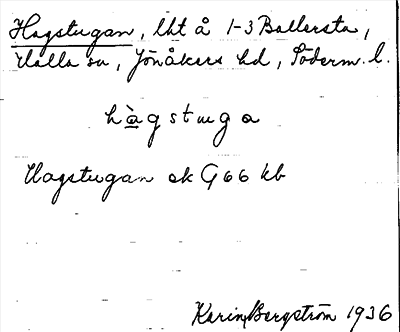 Hagstugan, lht å 1-3 Ballersta,
Halla sn, Jönåkers hd, Söderm. l.
hàgstuga
Hagstugan ek G66 kb
Karin Bergström 1936